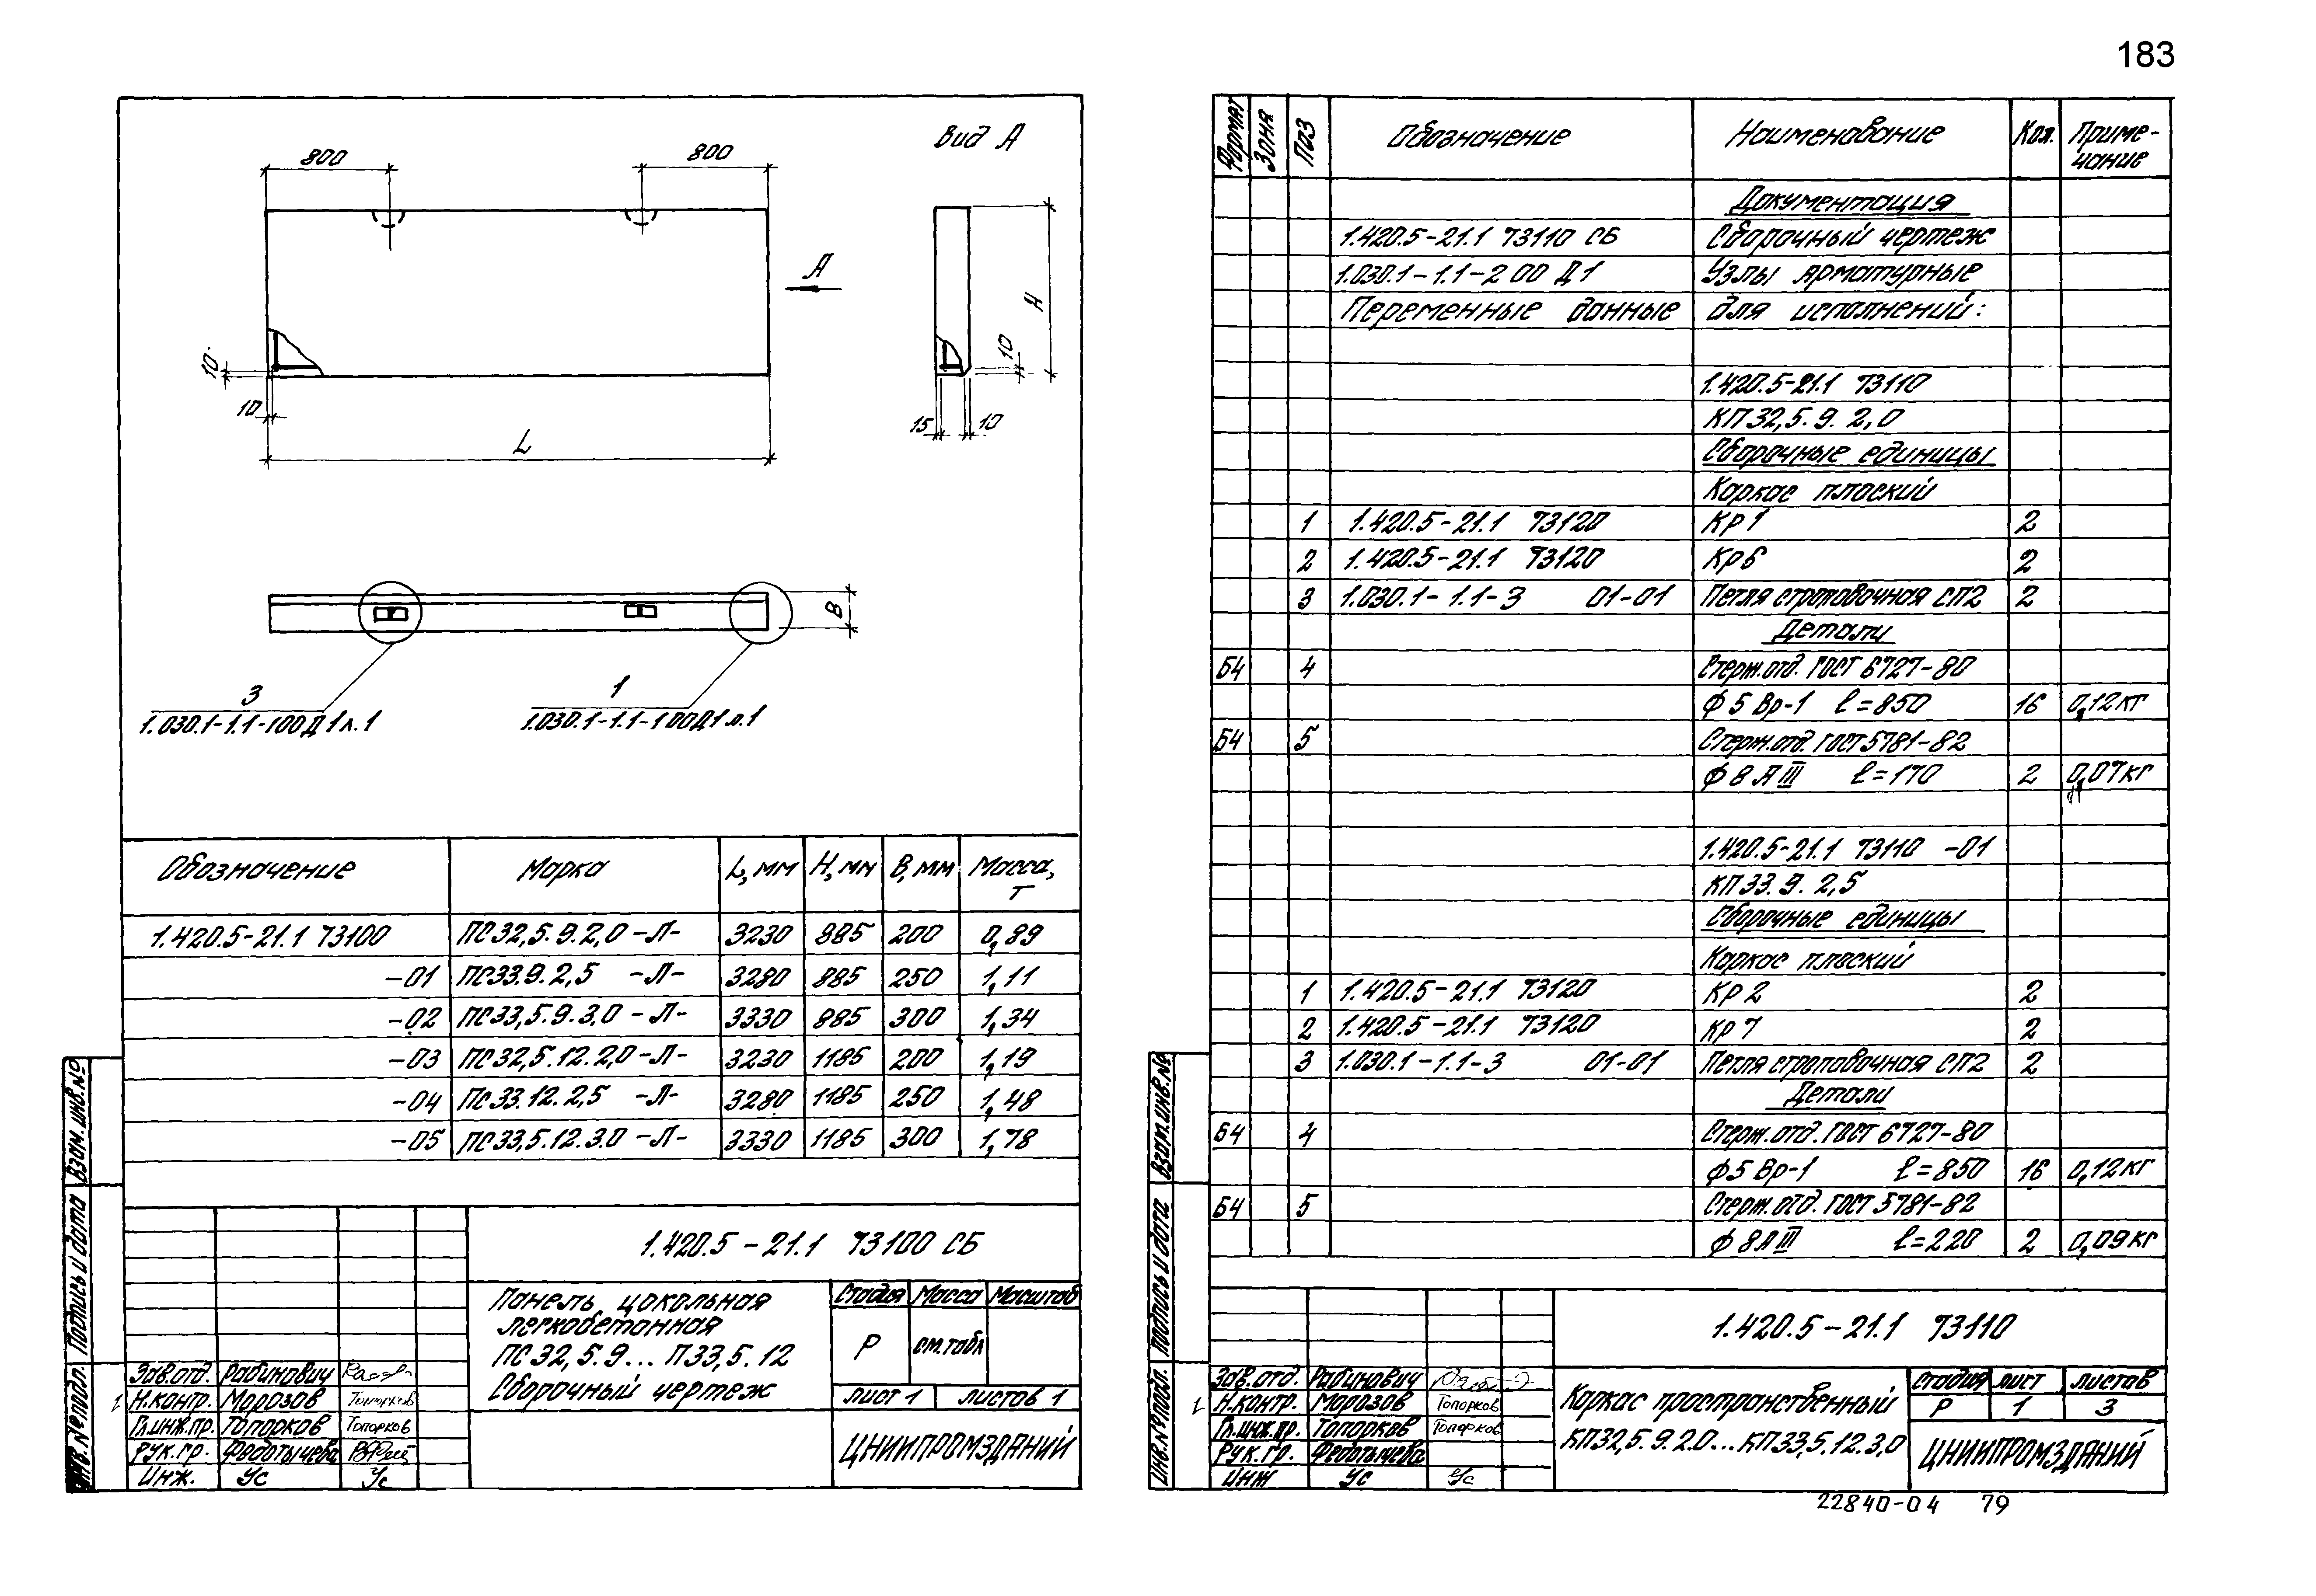 183
Вид А
800
800
А
Н
10
10
L
10
15
10
В
3
1.030.1-1.1-100Д1л.1
1
1.030.1-1.1-100Д1л.1
Обозначение Марка L,мм Н,мм В,мм Масса, Т
1.420.5-21.1 73100 ПС32,5.9.2,0 -Л- 3230 885 200 0,89
-01 ПС33.9.2,5 -Л- 3280 885 250 1,11
-02 ПС33,5.9.3,0 -Л- 3330 885 300 1,34
-03 ПС32,5.12.2,0 -Л- 3230 1185 200 1,19
-04 ПС33.12.2,5 -Л- 3280 1185 250 1,48
-05 ПС33,5.12.3.0 -Л- 3330 1185 300 1,78
1.420.5-21.1 73100 СБ
Панель цокольная
легкобетонная
ПС32,5.9...П33,5.12
Сборочный чертеж
Стадия Масса Масштаб
Р см.табл
лист 1 листов 1
ЦНИИПРОМЗДАНИЙ
Зав.отд. Рабинович
Н.контр. Морозов
Гл.инж.пр. Топорков Топорков
Рук.гр. Федотычева
Инж. Ус Ус
Инв.№подл. Подпись и дата Взам.инв.№
Формат Зона Поз Обозначение Наименование Кол. Приме-
чание
Документация
1.420.5-21.1 73110 СБ Сборочный чертеж
1.030.1-1.1-2 00 Д1 Узлы арматурные
Переменные данные для исполнений:
1.420.5-21.1 73110
КП32,5.9.2,0
Сборочные единицы
Каркас плоский
1 1.420.5-21.1 73120 Кр1 2
2 1.420.5-21.1 73120 Кр6 2
3 1.030.1-1.1-3 01-01 Петля строповочная СП2 2
Детали
Б4 4 Стерж.отд. ГОСТ 6727-80
Ф5 Вр-1 ℓ=850 16 0,12кг
Б4 5 Стерж.отд. ГОСТ 5781-82
Ф8АIII ℓ=170 2 0,07кг
1.420.5-21.1 73110 -01
КП33.9.2,5
Сборочные единицы
Каркас плоский
1 1.420.5-21.1 73120 Кр2 2
2 1.420.5-21.1 73120 Кр7 2
3 1.030.1-1.1-3 01-01 Петля строповочная СП2 2
Детали
Б4 4 Стерж.отд. ГОСТ 6727-80
Ф5 Вр-1 ℓ=850 16 0,12кг
Б4 5 Стерж.отд. ГОСТ 5781-82
Ф8АIII ℓ=220 2 0,09кг
1.420.5-21.1 73110
Каркас пространственный
КП32,5.9.2.0...КП33,5.12.3,0
Стадия лист листов
Р 1 3
ЦНИИПРОМЗДАНИЙ
Зав.отд. Рабинович
Н.контр. Морозов Топорков
Гл.инж.пр. Топорков Топорков
Рук.гр. Федотычева
Инж Ус Ус
Инв.№подл. Подпись и дата Взам.инв.№
22840-04 79